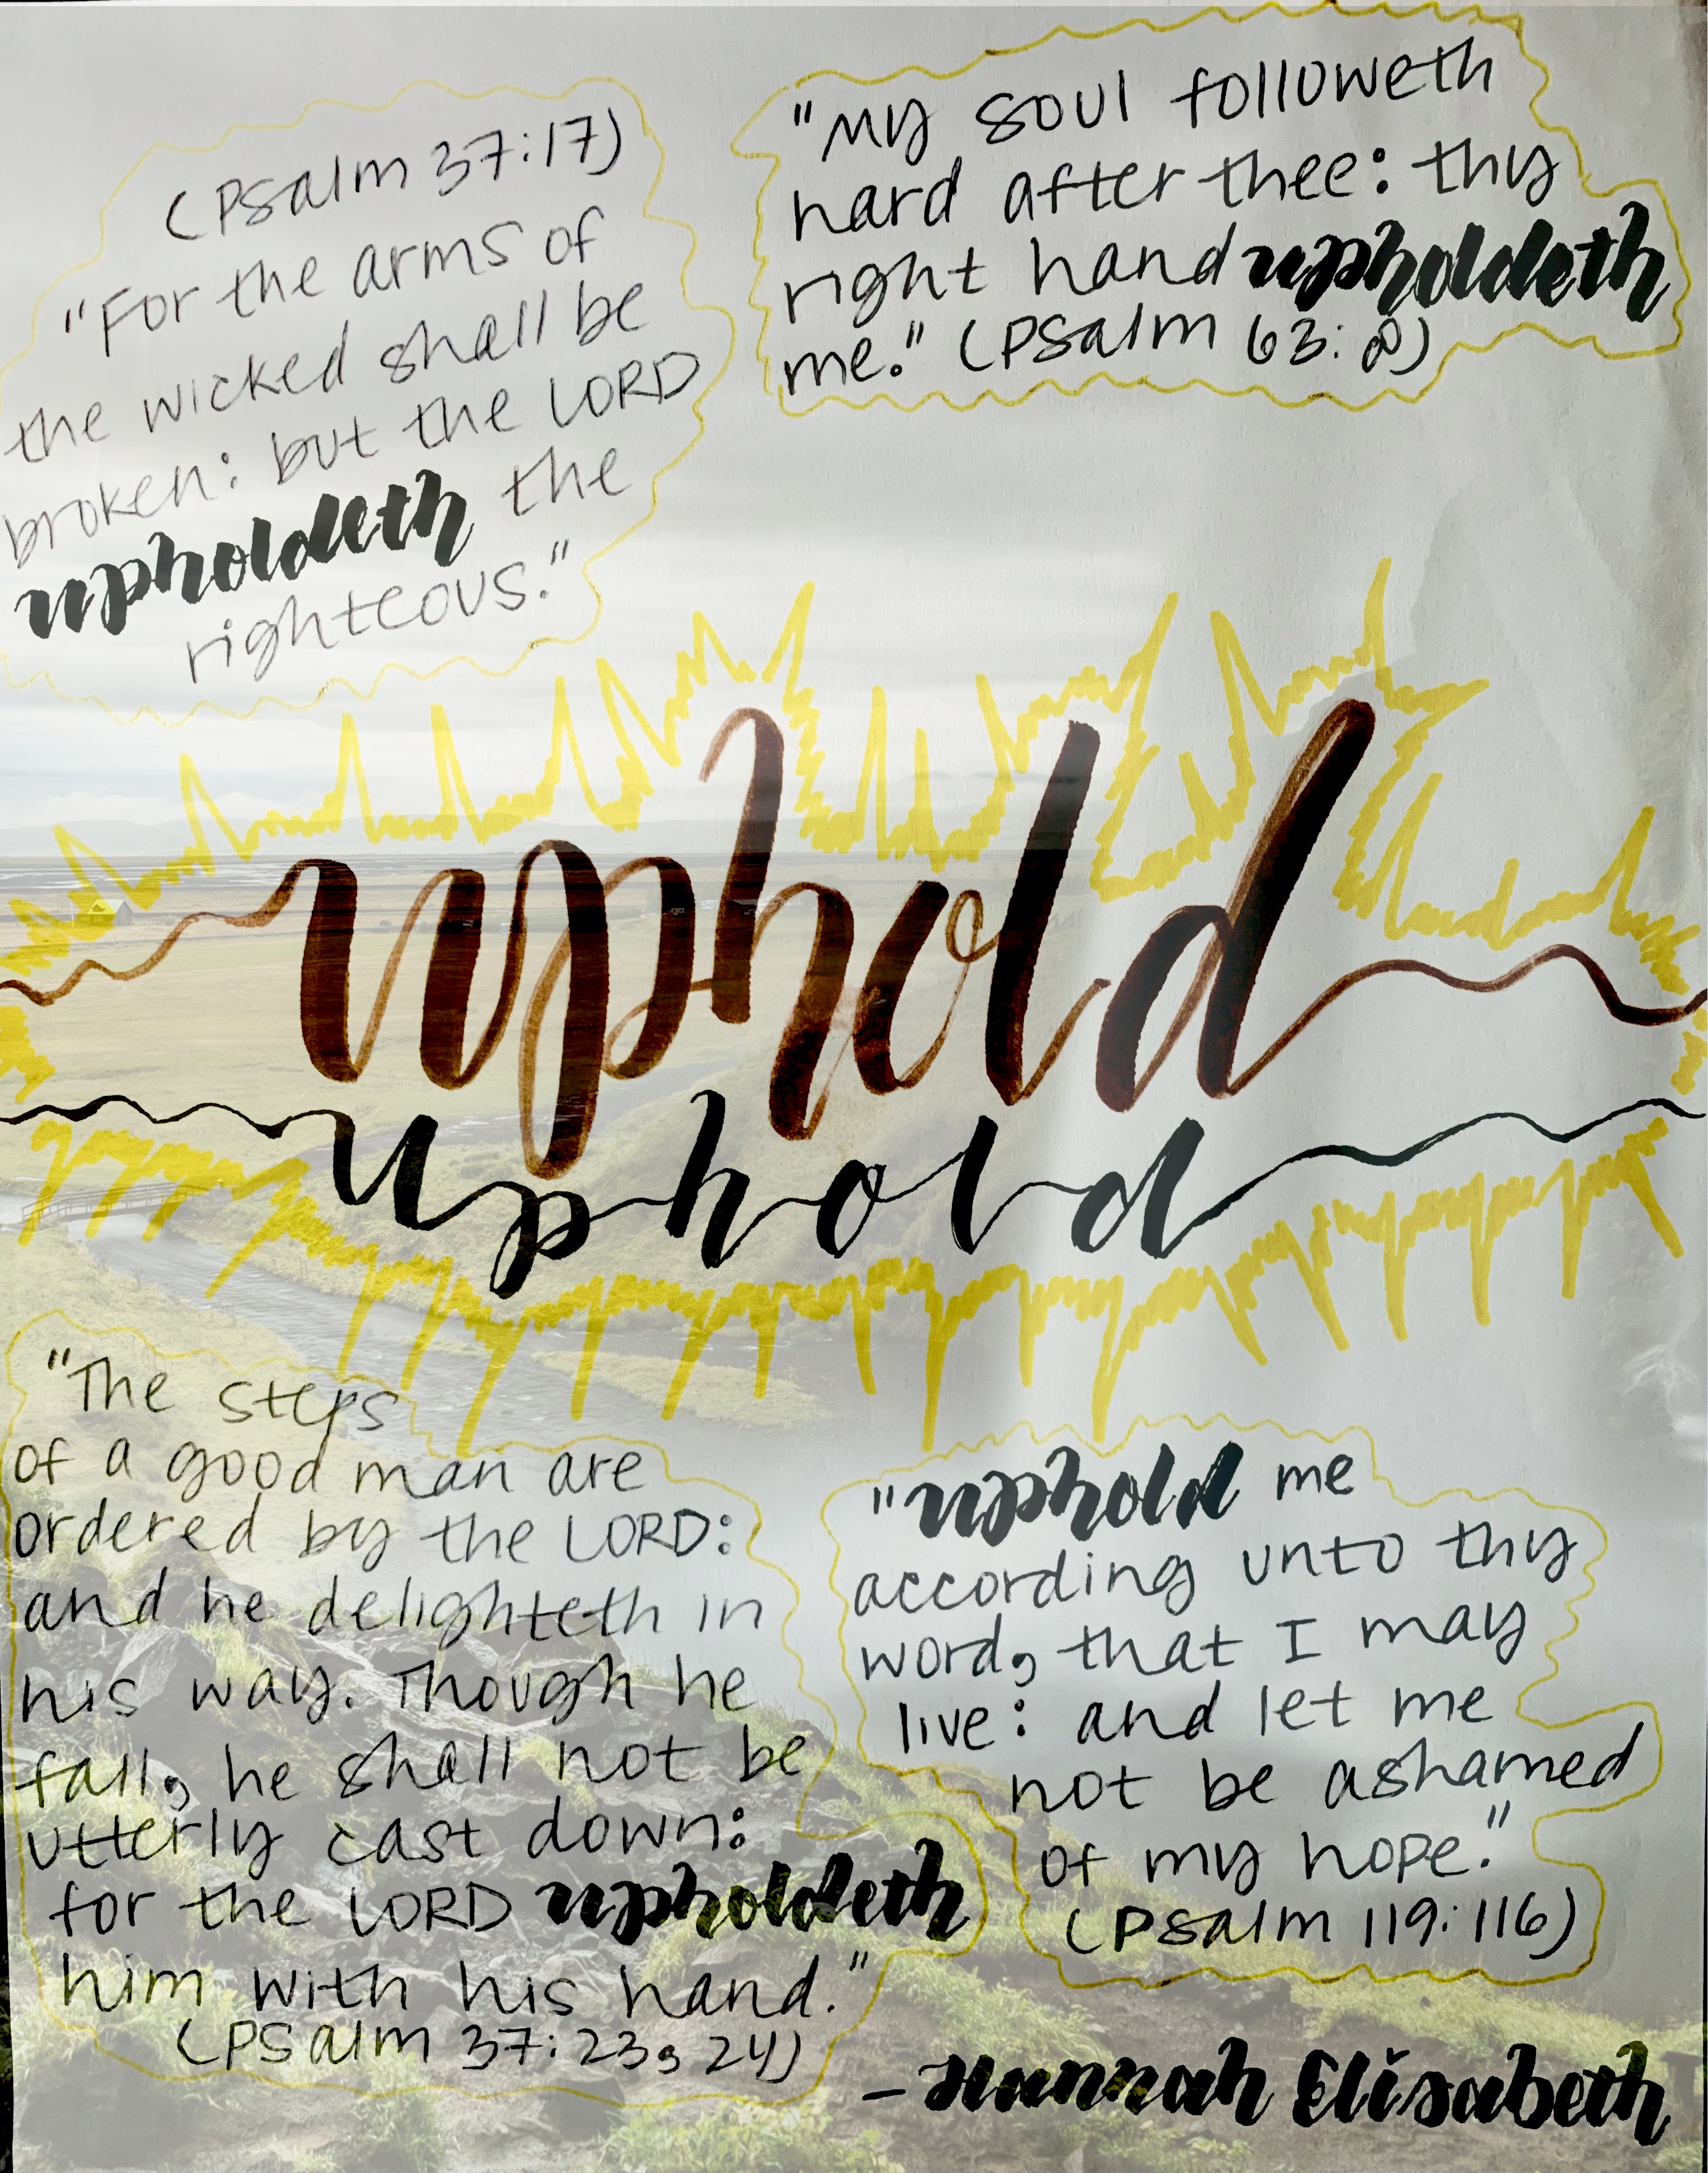 (Psalm 37:17)
"For the arms of
the wicked shall be
broken: but the LORD
upholdeth the
righteous."
"My soul followeth
hard after thee: thy
right hand upholdeth
me." (Psalm 63:8)
uphold
uphold
"The steps
of a good man are
ordered by the LORD:
and he delighteth in
his way. Though he
fall, he shall not be
utterly cast down:
for the LORD upholdeth
him with his hand."
(Psalm 37:23, 24)
"uphold me
according unto thy
word, that I may
live: and let me
not be ashamed
of my hope."
(Psalm 119:116)
- Hannah Elisabeth